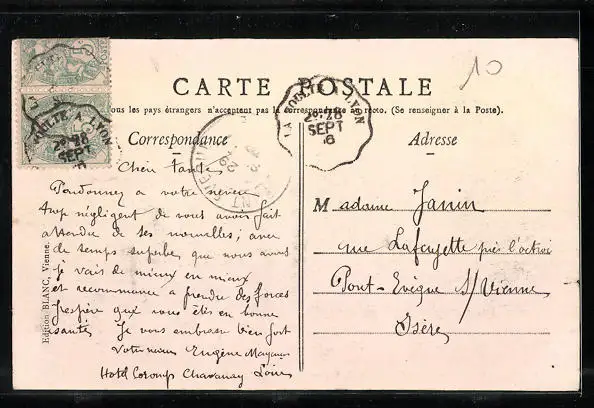 10
CARTE POSTALE
ous les pays étrangers n'acceptent pas la correspondance au recto. (Se renseigner à la Poste).
Correspondance
Adresse
LA VOULTE A LYON
28
SEPT
LA VOULTE A LYON
28
SEPT
6
Chère Tante
Pardonnez à votre neveu
trop négligent de vous avoir fait
attendre de ses nouvelles; avec
de temps superbe que nous avons
je vais de mieux en mieux
et recommence à prendre des forces
J'espère que vous êtes en bonne
santé Je vous embrasse bien fort
Votre neveu Eugène
Hotel Chavanay Loire
Madame Janin
rue Lafayette près l'octroi
Pont-Evêque s/Vienne
Isère
Edition BLANC, Vienne.